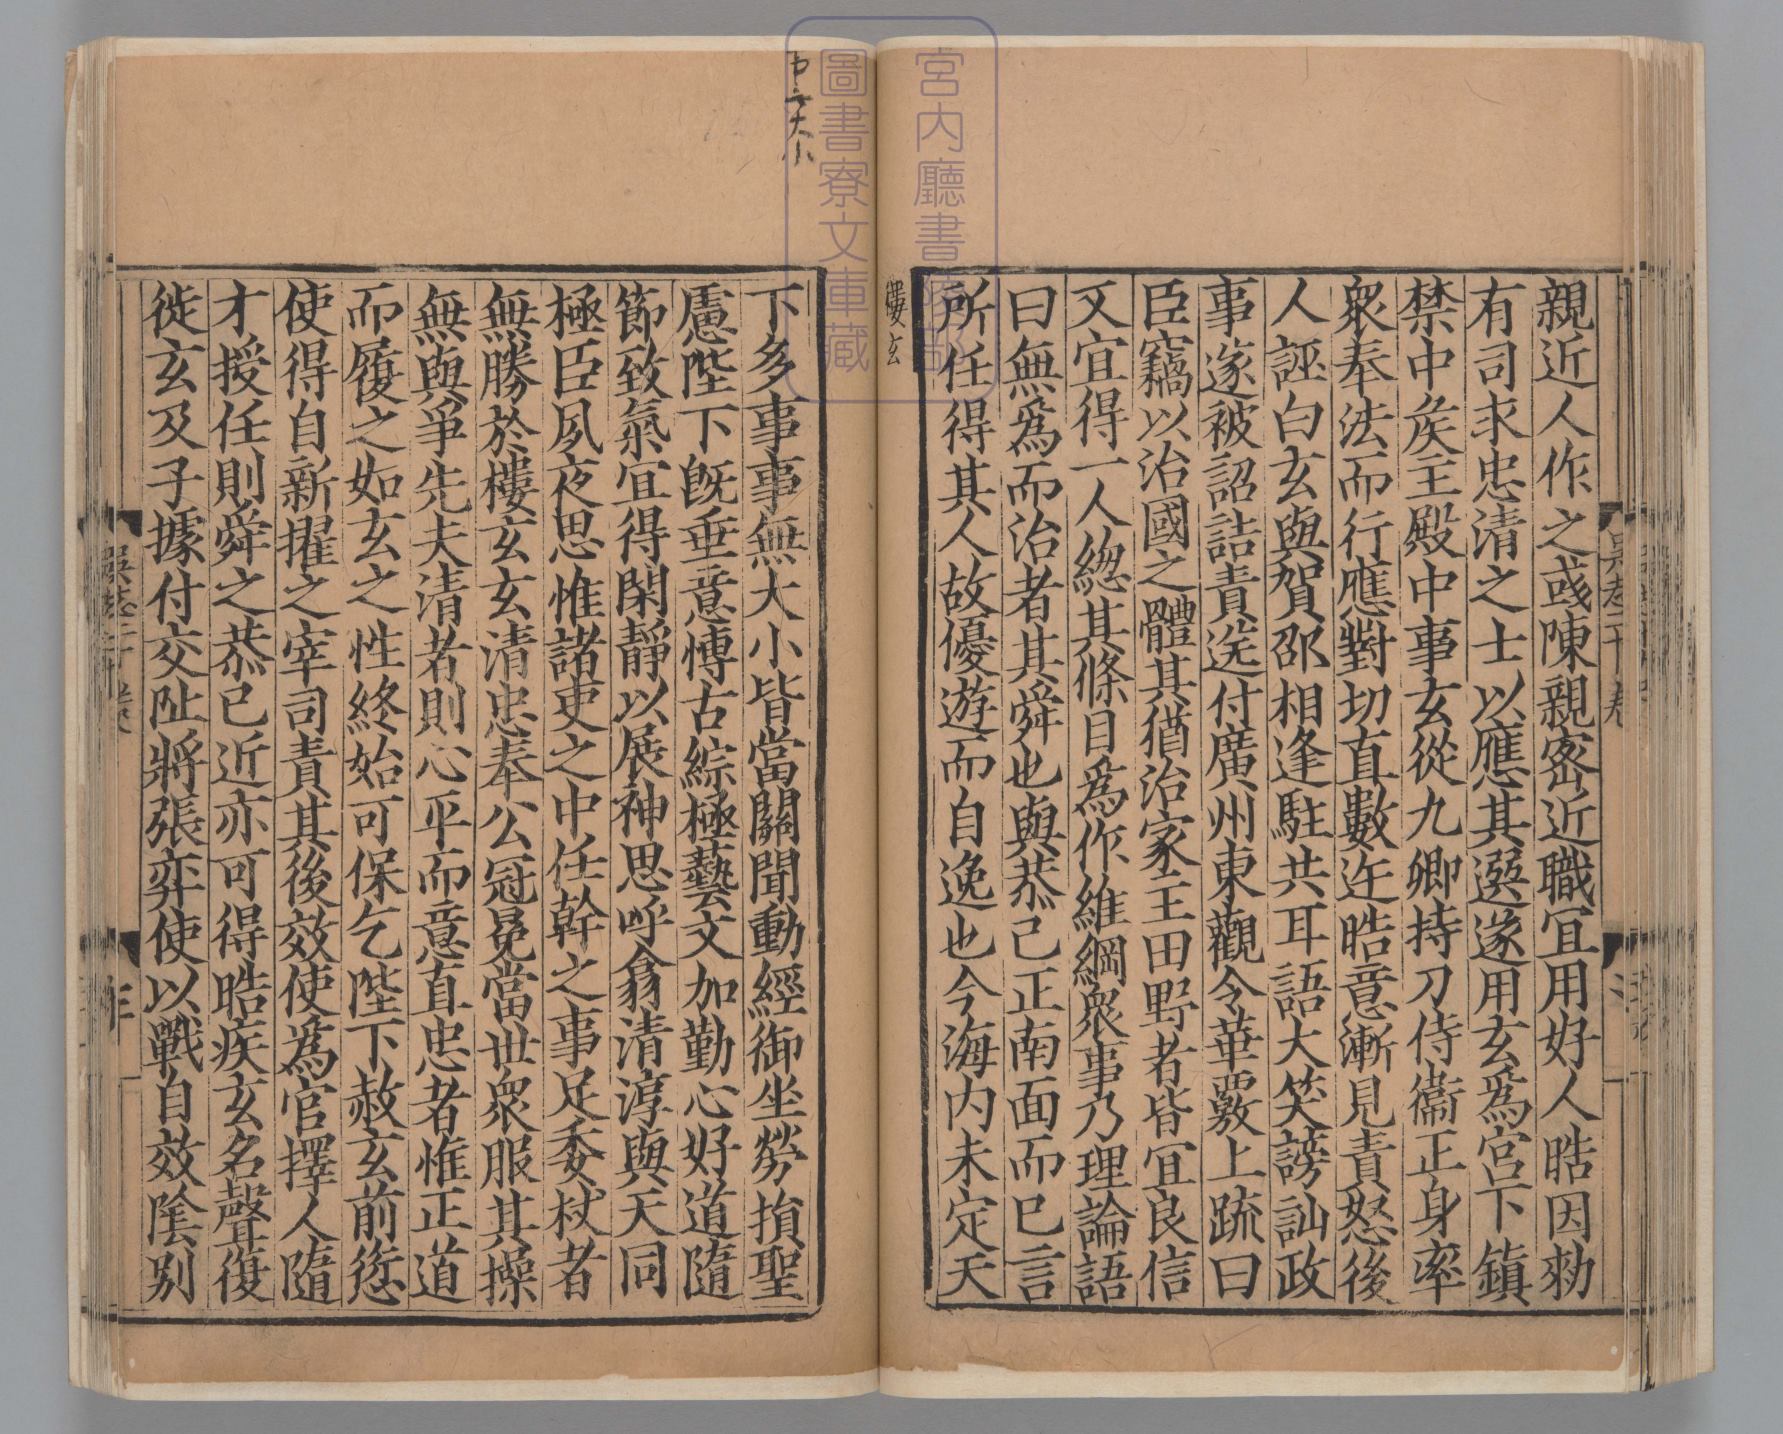 親近人作之彧陳親密近職宜用好人晧因勑
有司求忠清之士以應其選遂用玄爲宮下鎮
禁中矦主殿中事玄從九卿持刀侍衞正身率
衆奉法而行應對切直數迕晧意漸見責怒後
人誣白玄與賀邵相逢駐共耳語大笑謗訕政
事遂被詔詰責送付廣州東觀令華覈上疏曰
臣竊以治國之體其猶治家主田野者皆宜良信
又宜得一人緫其條目爲作維綱衆事乃理論語
曰無爲而治者其舜也與恭己正南面而已言
所任得其人故優遊而自逸也今海内未定天
樓玄
下多事事無大小皆當關聞動經御坐勞損聖
慮陛下旣垂意博古綜極藝文加勤心好道隨
節致氣宜得閑靜以展神思呼翕清淳與天同
極臣夙夜思惟諸吏之中任幹之事足委杖者
無勝於樓玄玄清忠奉公冠冕當世衆服其操
無與爭先夫清者則心平而意直忠者惟正道
而履之如玄之性終始可保乞陛下赦玄前愆
使得自新擢之宰司責其後效使爲官擇人隨
才授任則舜之恭己近亦可得晧疾玄名聲復
徙玄及子據付交阯將張弈使以戰自效陰别
宮内廳書陵部
圖書寮文庫藏